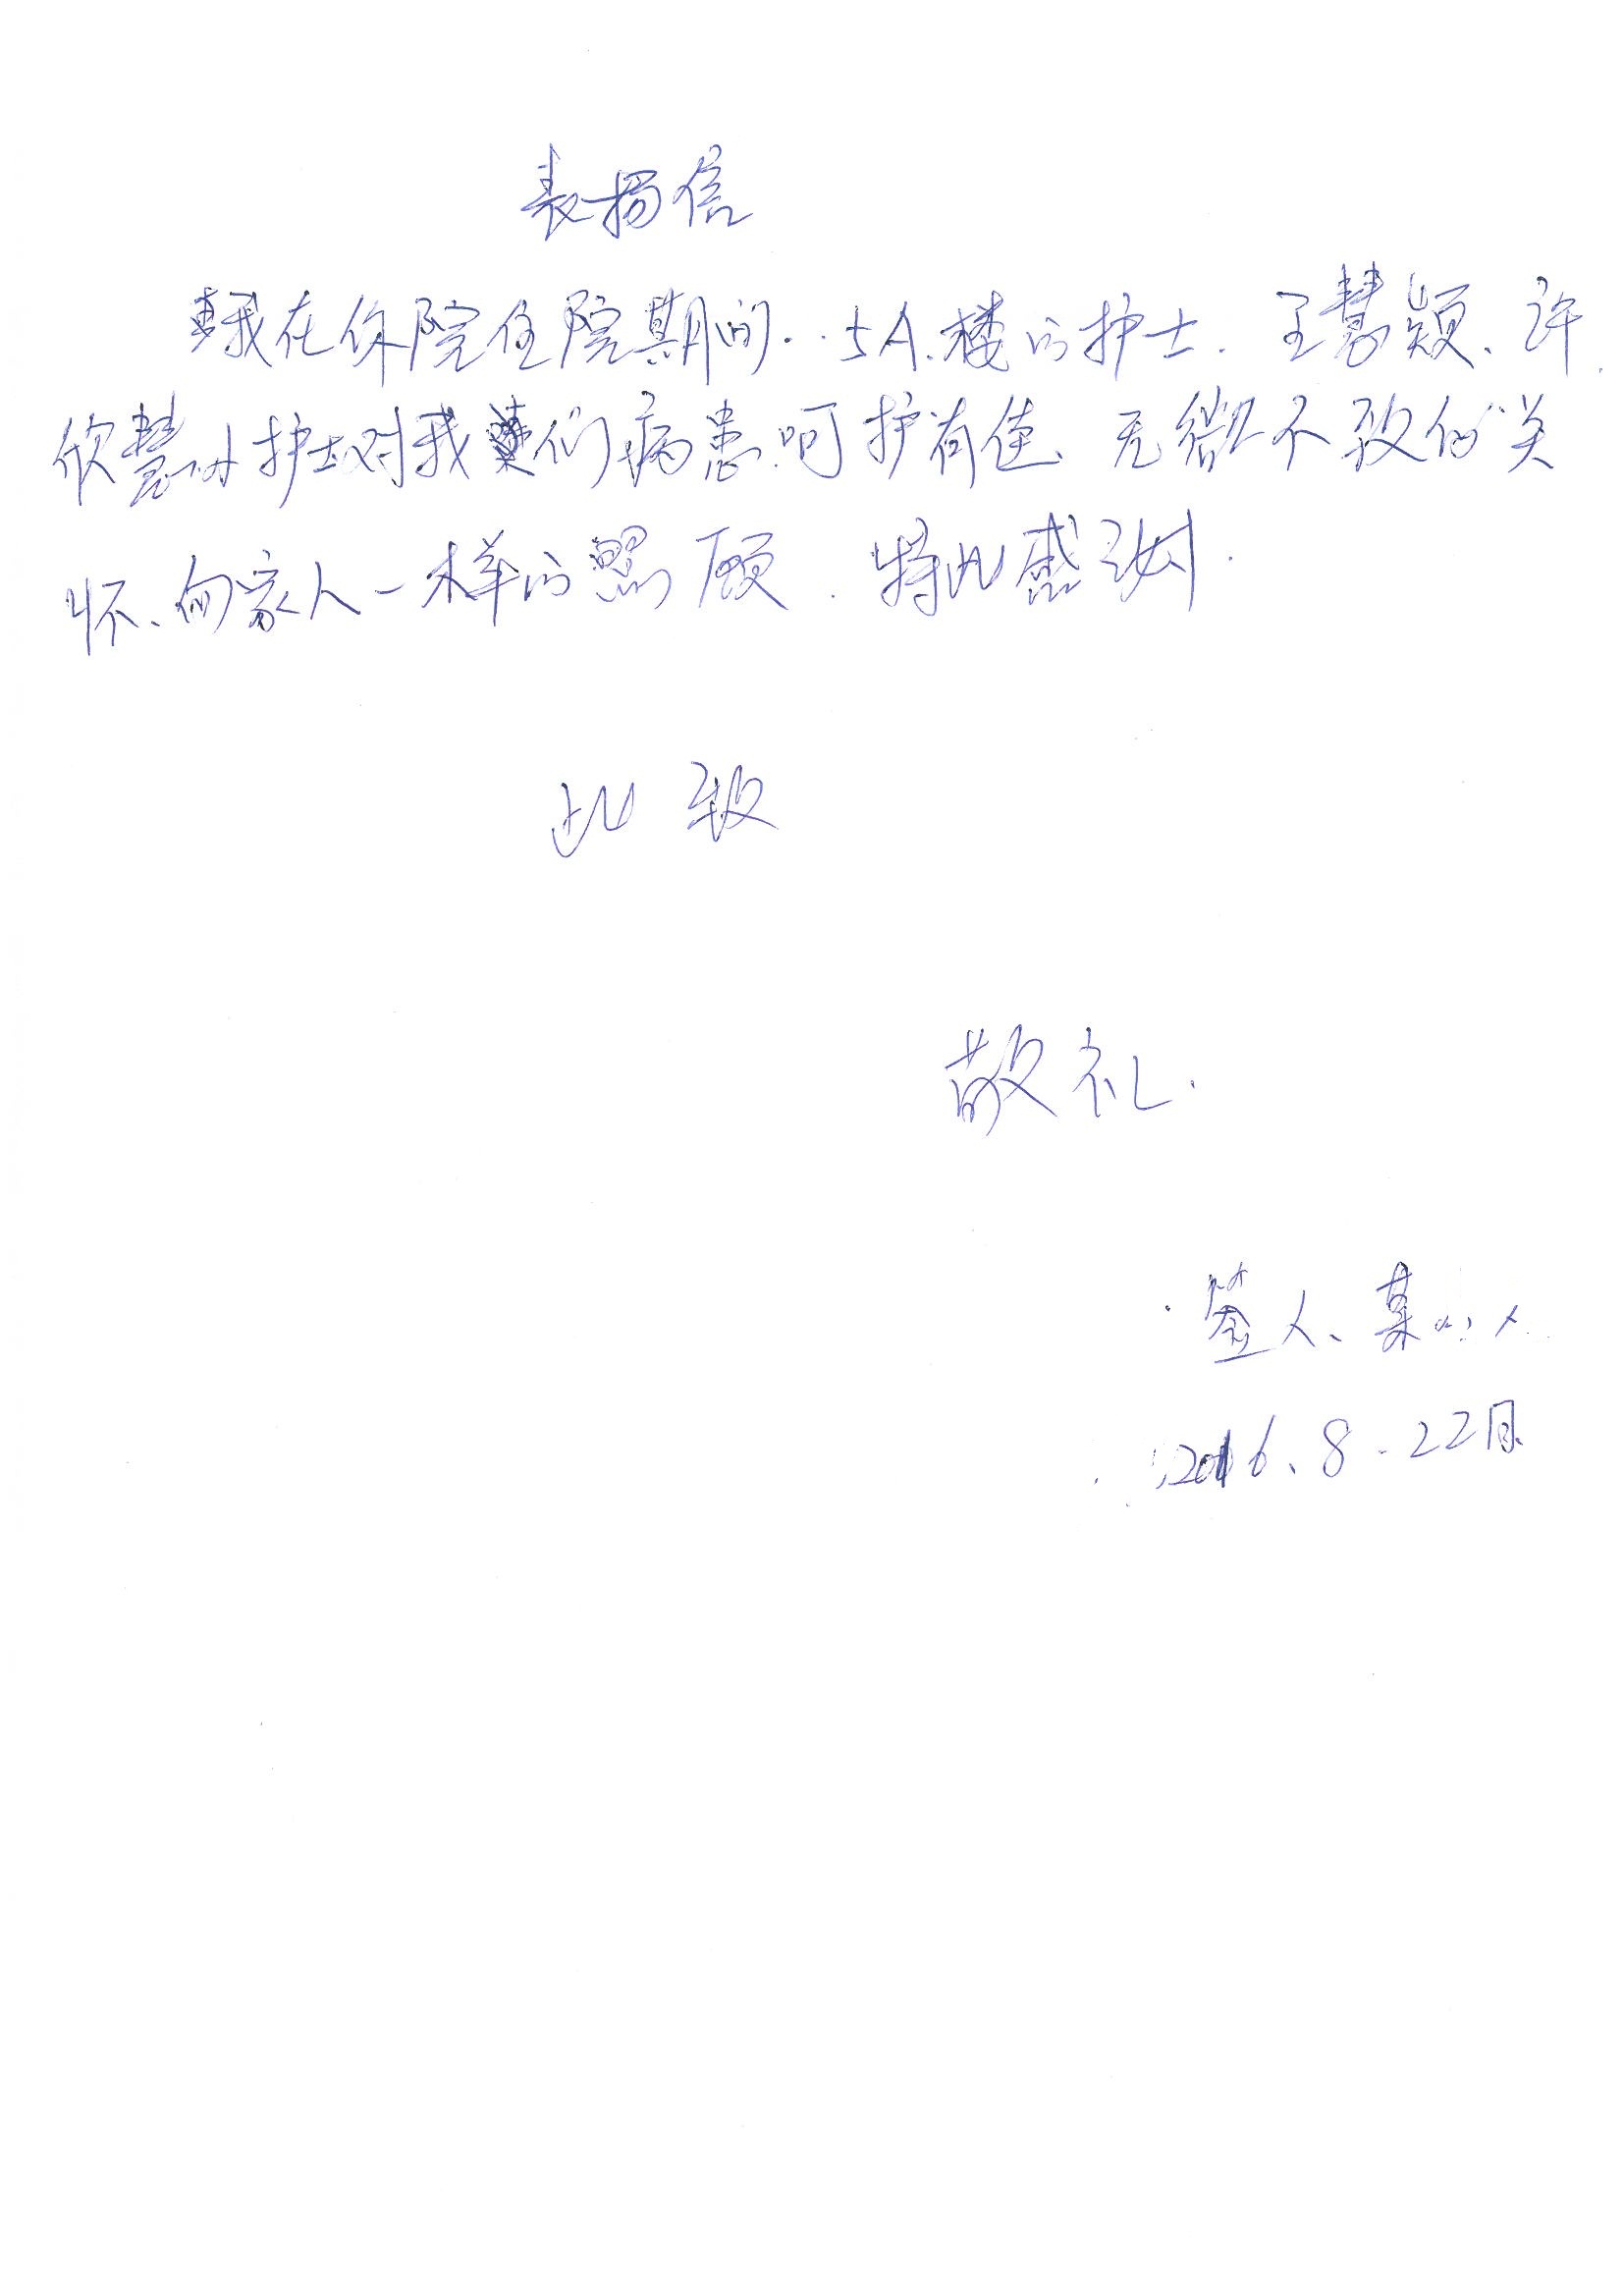 表扬信
我在你院住院期间..5A.楼的护士.王慧颖、许
欣慧小护士对我们病患呵护有佳 无微不致的关
怀、向家人一样的照顾.特此感谢.
此致
敬礼.
签人、某
2016.8.22日